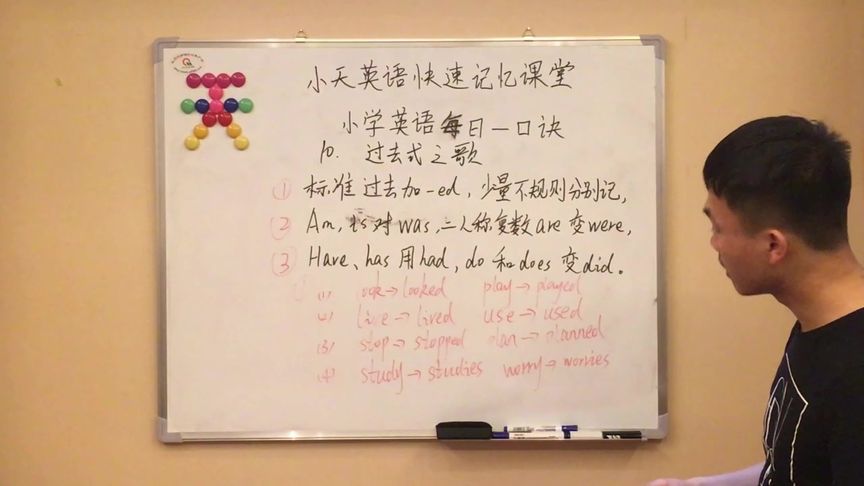 小天英语快速记忆课堂
小学英语每日一口诀
10. 过去式之歌
① 标准过去加-ed,少量不规则分别记,
② Am, is对was,二人称复数are变were,
③ Have、has用had,do和does变did。
(1) look→looked play→played
(2) live→lived use→used
(3) stop→stopped plan→planned
(4) study→studies worry→worries